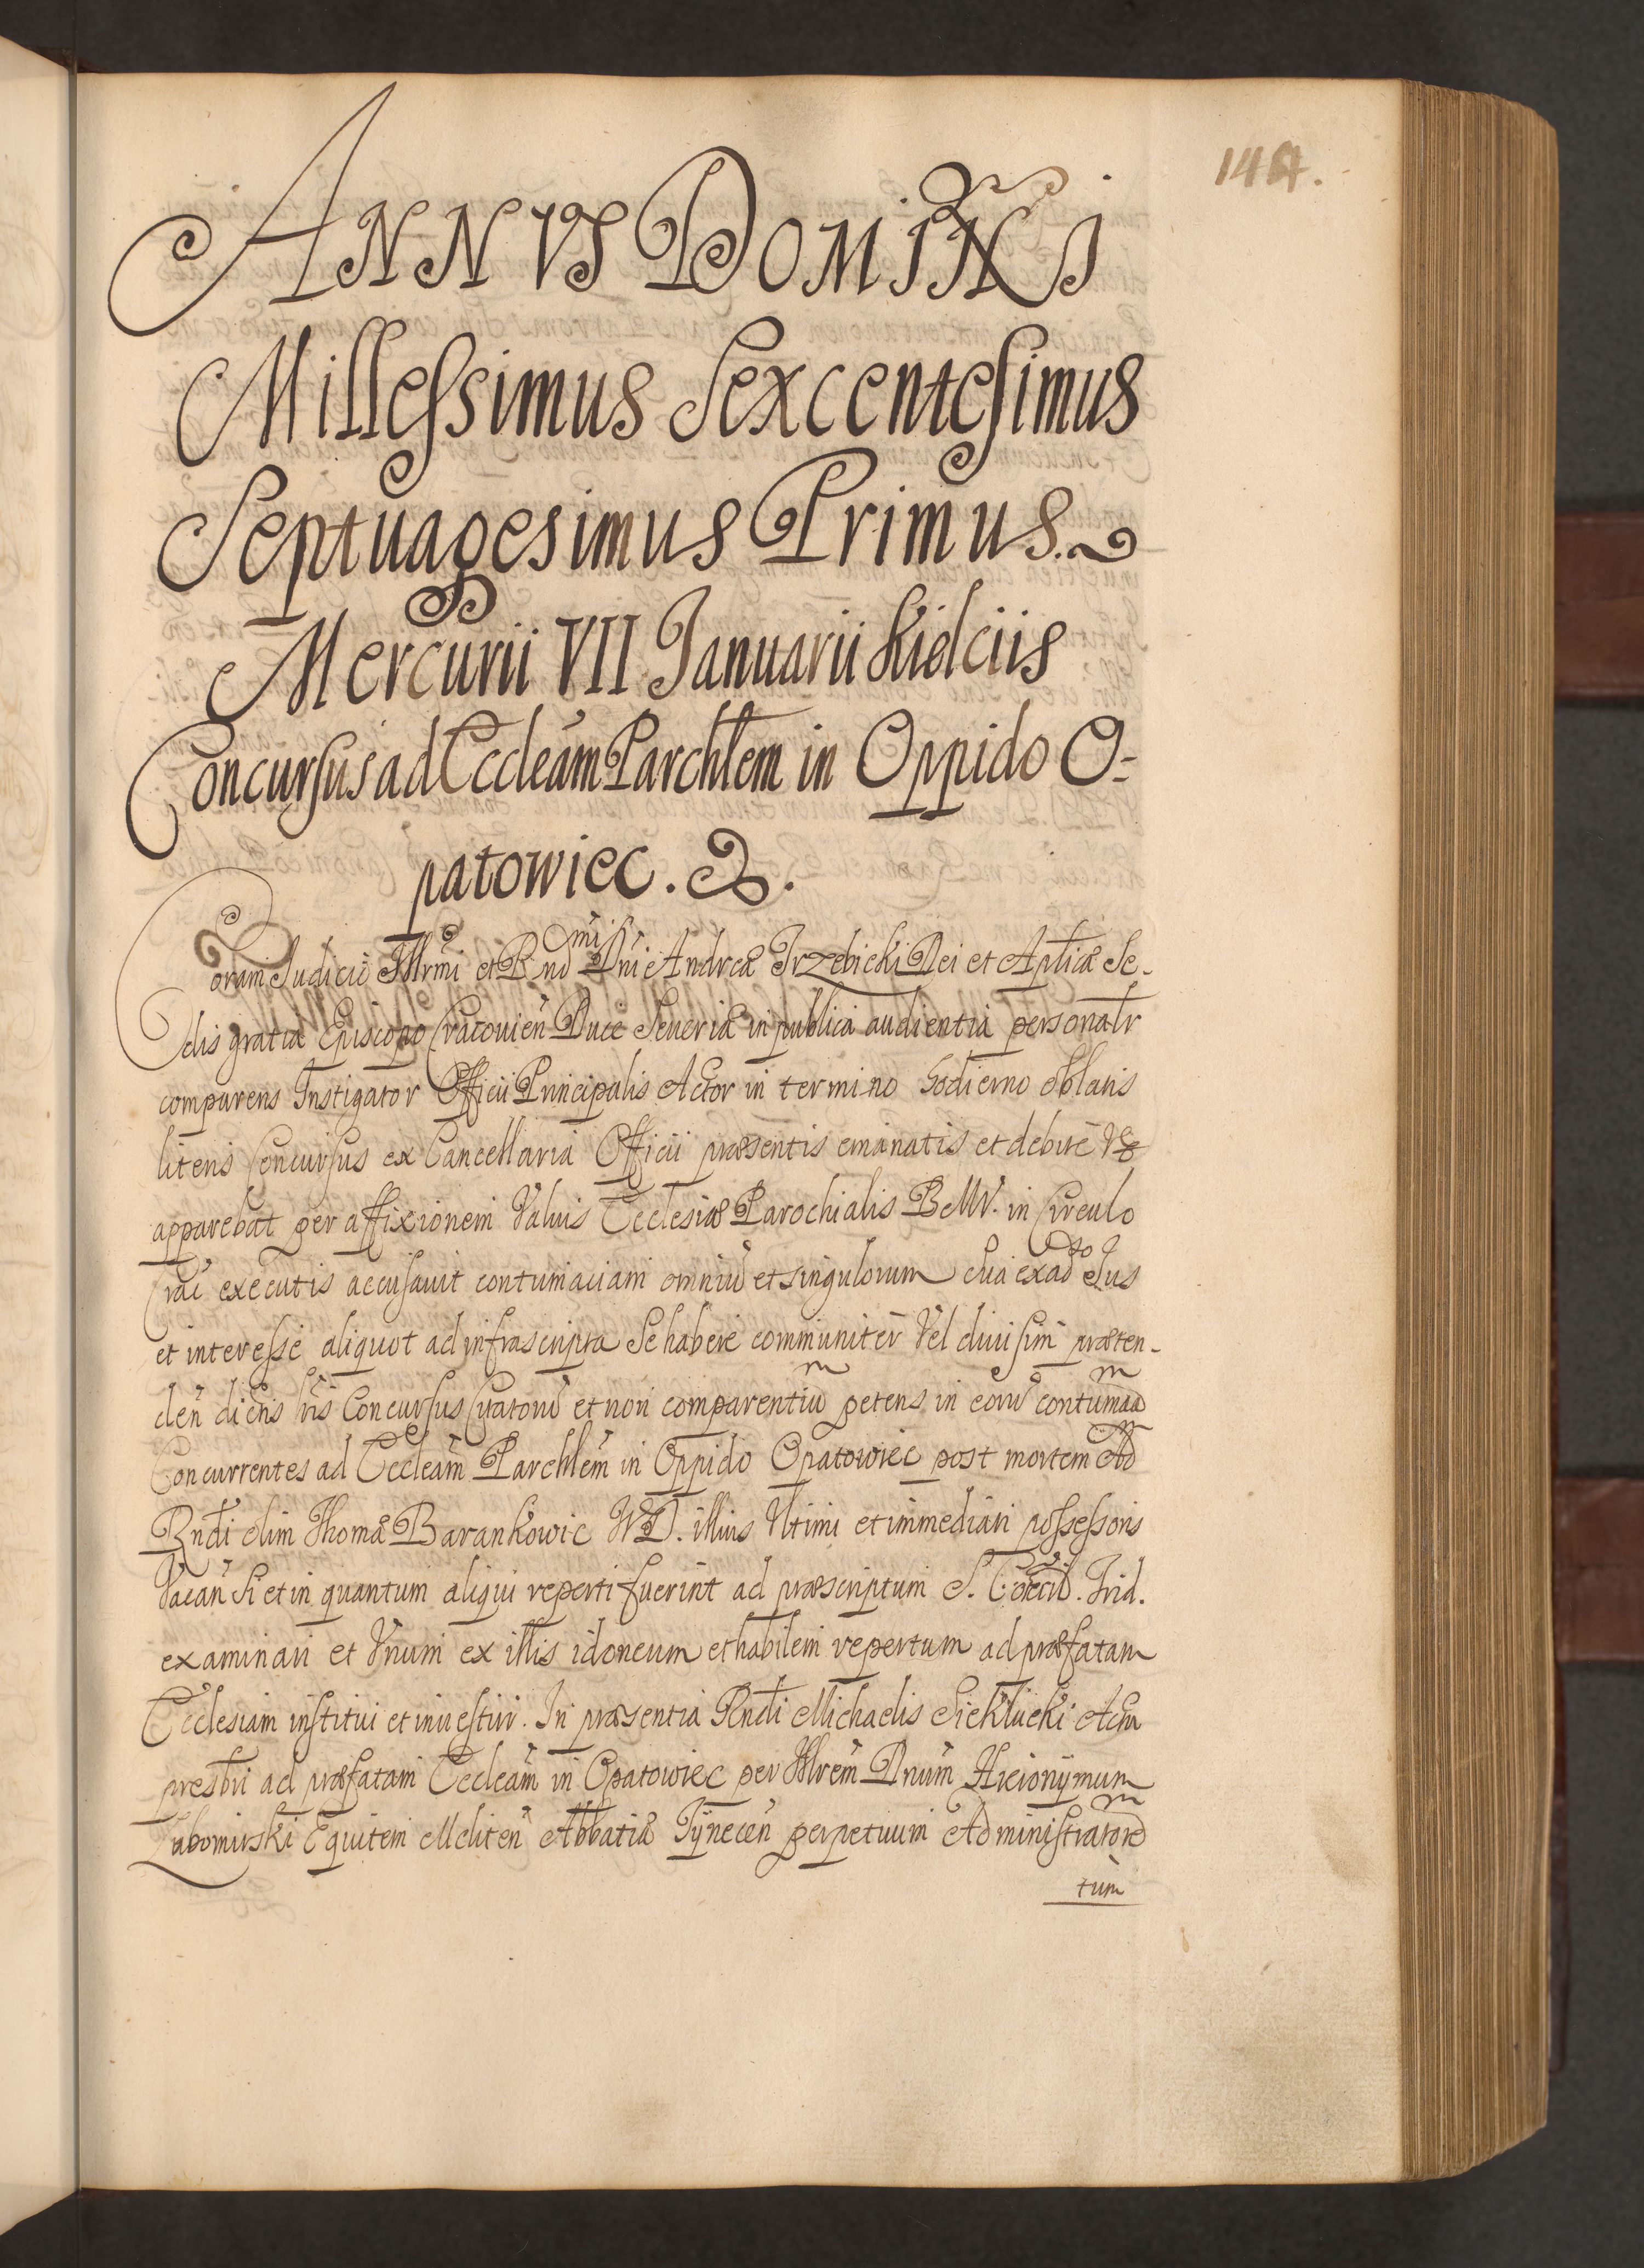 ANNVS DOMINI
Millessimus Sexcentesimus
Septuagesimus Primus.
Mercurii VII Januarii Kielciis
Concursus ad Eccleam Parchlem in Oppido O-
patowiec.
Coram Judicio Illrmi et Rndmi Dni Andreæ Trzebicki Dei et Aplicæ Se-
dis gratia Episcopo Cracouien Duce Seueriæ in publica audientia personalr
comparens Instigator Officii Principalis Actor in termino hodierno oblatis
literis Concursus ex Cancellaria Officii præsentis emanatis et debite
apparebat per affixionem Valuis Ecclesiæ Parochialis BMV. in Circulo
Crac executis accusauit contumaciam omniu et singulorum sua ex ad Jus
et interesse aliquot ad infrascripta Se habere communiter Vel diuisim præten-
den dicens lris Concursus Citatoru et non comparentium petens in eoru contumaciam
Concurrentes ad Eccleam Parchlem in Oppido Opatowiec post mortem Ad
Rndi olim Thomæ Barankowic illius Vltimi et immediati possessoris
Vacan Si et in quantum aliqui reperti fuerint ad præscriptum S. Concil. Trid.
examinari et Vnum ex illis idoneum et habilem repertum ad præfatam
Ecclesiam institui et inuestiri. In præsentia Rndi Michaelis Sieklucki Actu
presbri ad præfatam Eccleam in Opatowiec per Illrem Dnum Hieronymum
Lubomirski Equitem Meliten Abbatiæ Tynecen perpetuum Administratorem
tum